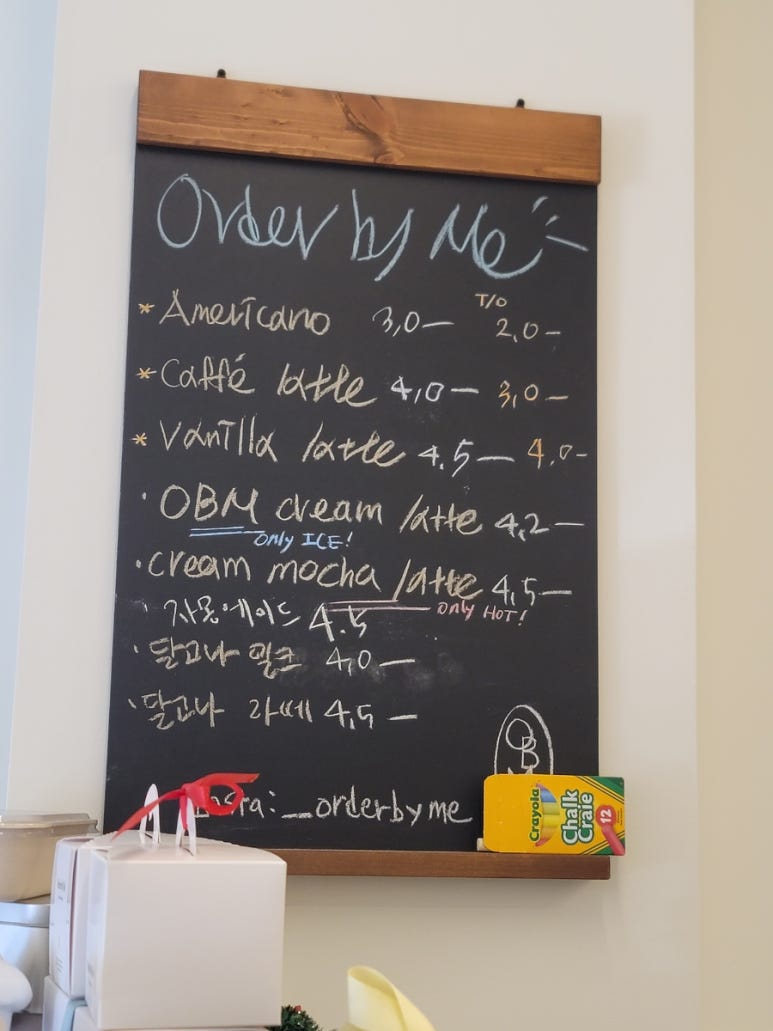 Order by Me
T/O
* Americano 3,0— 2,0—
* Caffé latte 4,0— 3,0—
* Vanilla latte 4.5— 4,0-
· OBM cream latte 4,2—
only ICE!
· cream mocha latte 4,5—
only HOT!
· 자몽에이드 4.5
· 달고나 밀크 4,0—
· 달고나 라떼 4,5—
OB
: _orderbyme
Crayola
Chalk
Craie
12